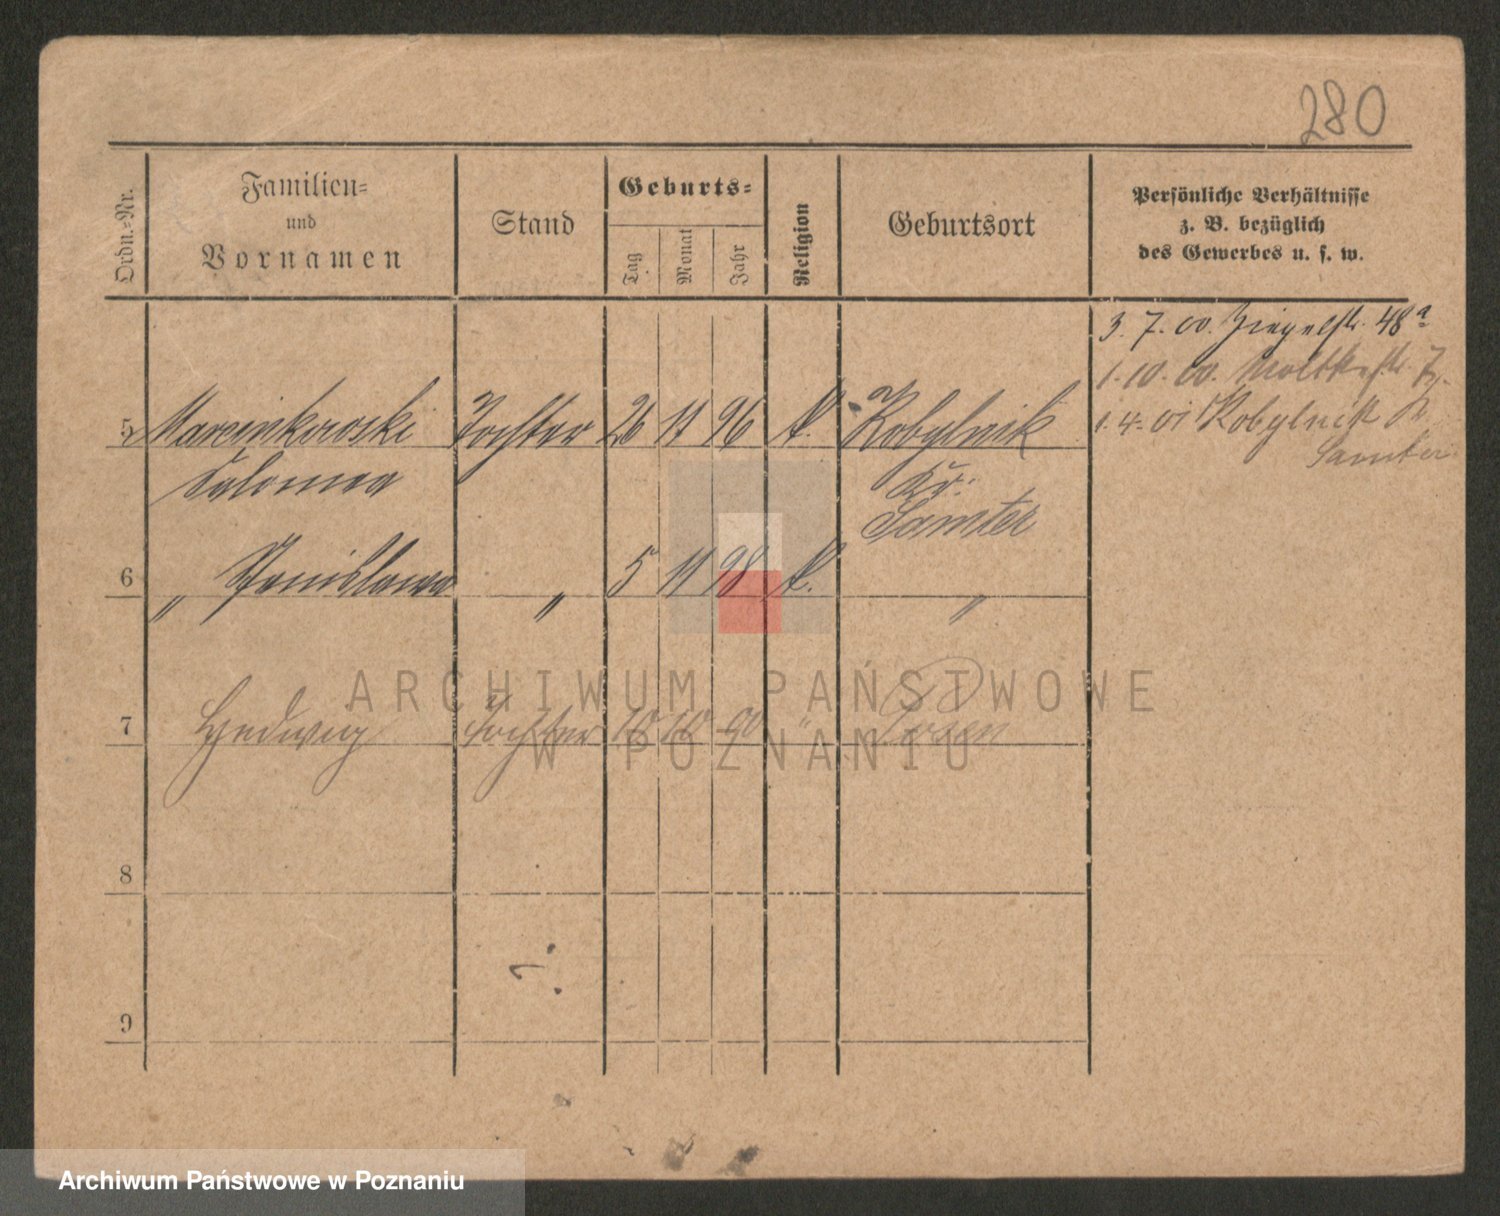 280
Ordn.-Nr.
Familien-
und
Vornamen
Stand
Geburts-
Tag
Monat
Jahr
Religion
Geburtsort
Persönliche Verhältnisse
z. B. bezüglich
des Gewerbes u. s. w.
3. 7. 00. Ziegelstr. 48a
1. 10. 00. Moltkestr. 7
1. 4. 01 Kobylnik Kr.
Samter
5 Marcinkowski Tochter 26 11 96 k. Kobylnik
Salomea Kr:
Samter
6 " Stanislawa " 5 11 98 k. "
7 Hedwig Tochter 10 10 00 " Posen
8
9
ARCHIWUM PAŃSTWOWE
W POZNANIU
Archiwum Państwowe w Poznaniu